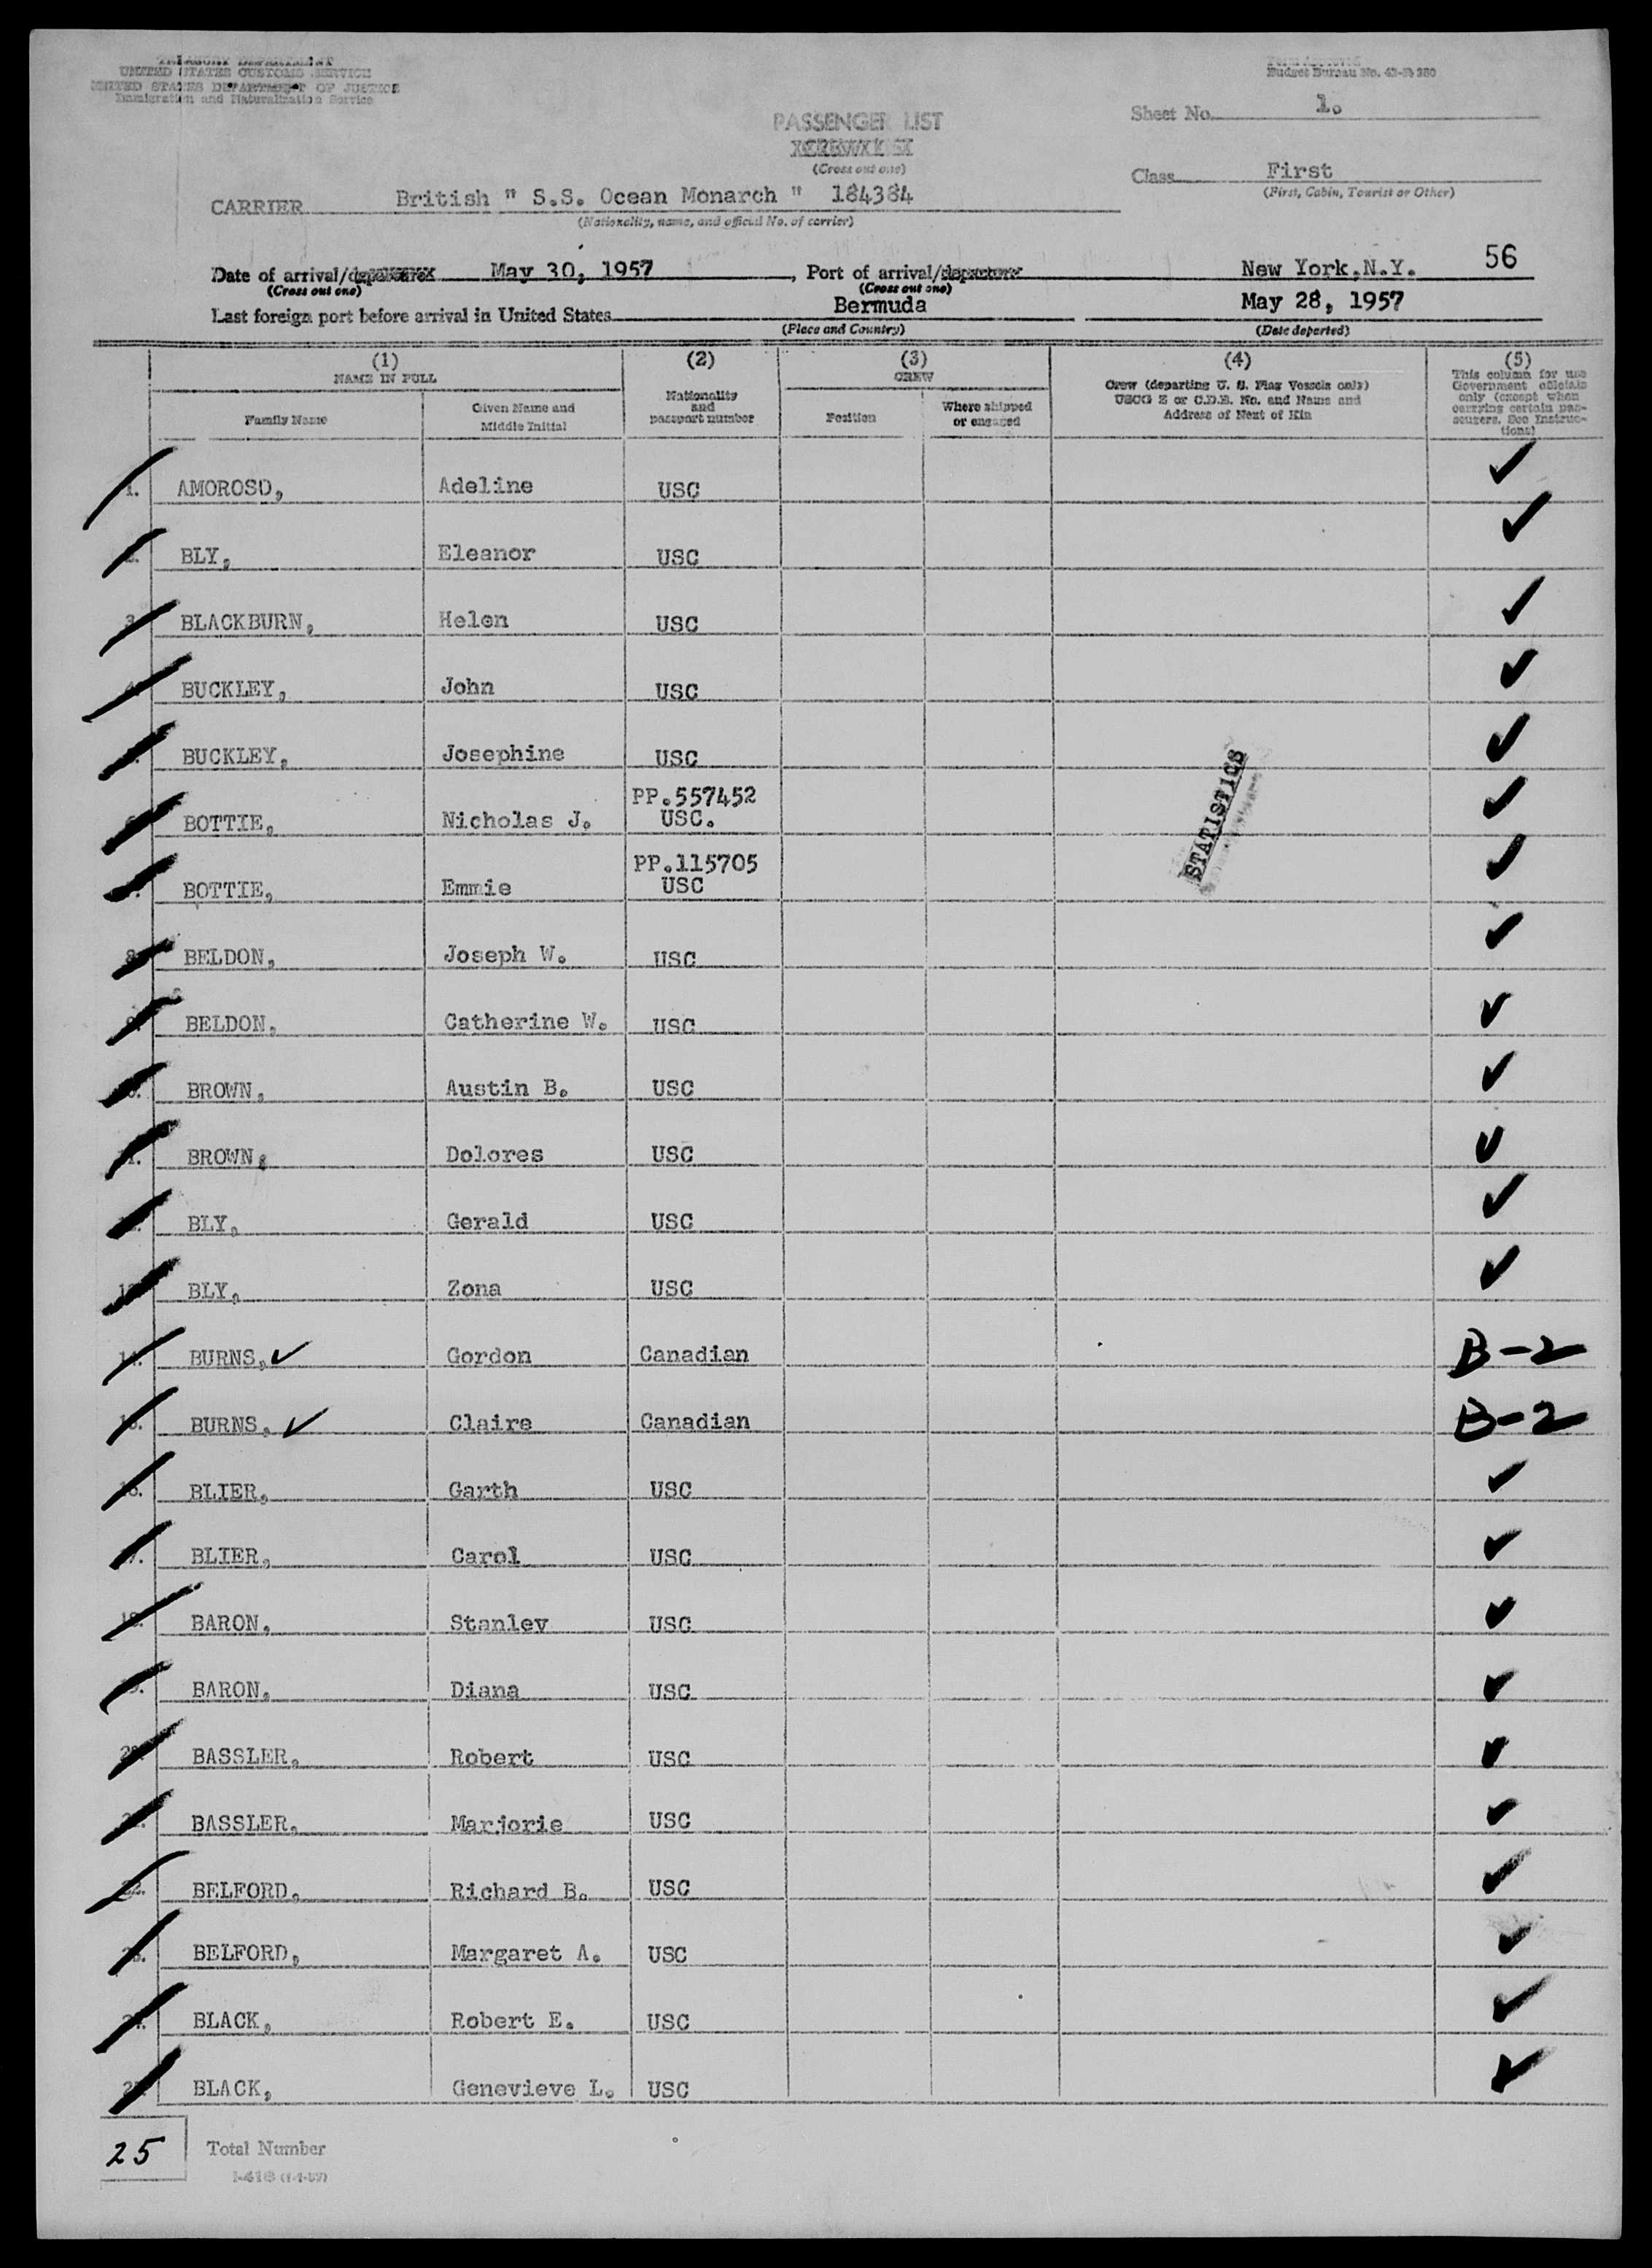 TREASURY DEPARTMENT
UNITED STATES CUSTOMS SERVICE
UNITED STATES DEPARTMENT OF JUSTICE
Immigration and Naturalization Service
Form Approved
Budget Bureau No. 43-R 280
Sheet No. 1.
PASSENGER LIST
(Cross out one)
Class First
(First, Cabin, Tourist or Other)
CARRIER British " S.S. Ocean Monarch " 184384
(Nationality, name, and official No. of carrier)
Date of arrival/departure May 30, 1957, Port of arrival/departure New York,N.Y. 56
(Cross out one) (Cross out one)
Last foreign port before arrival in United States Bermuda May 28, 1957
(Place and Country) (Date departed)
(1) (2) (3) (4) (5)
NAME IN FULL
Family Name
Given Name and
Middle Initial
Nationality
and
passport number
CREW
Position
Where shipped
or engaged
Crew (departing U. S. Flag Vessels only)
USCG Z or C.D.B. No. and Name and
Address of Next of Kin
This column for use
Government officials
only (except when
carrying certain pas-
sengers. See Instruc-
tions)
1. AMOROSO, Adeline USC ✓
2. BLY, Eleanor USC ✓
3. BLACKBURN, Helen USC ✓
4. BUCKLEY, John USC ✓
BUCKLEY, Josephine USC ✓
BOTTIE, Nicholas J. PP.557452 USC. ✓
BOTTIE, Emmie PP.115705 USC ✓
STATISTICS
8. BELDON, Joseph W. USC ✓
9. BELDON, Catherine W. USC ✓
BROWN, Austin B. USC ✓
BROWN, Dolores USC ✓
BLY, Gerald USC ✓
13. BLY, Zona USC ✓
14. BURNS, ✓ Gordon Canadian B-2
15. BURNS, ✓ Claire Canadian B-2
16. BLIER, Garth USC ✓
17. BLIER, Carol USC ✓
18. BARON, Stanley USC ✓
19. BARON, Diana USC ✓
20. BASSLER, Robert USC ✓
BASSLER, Marjorie USC ✓
22. BELFORD, Richard B. USC ✓
23. BELFORD, Margaret A. USC ✓
24. BLACK, Robert E. USC ✓
25. BLACK, Genevieve L. USC ✓
25 Total Number
I-418 (1-1-57)